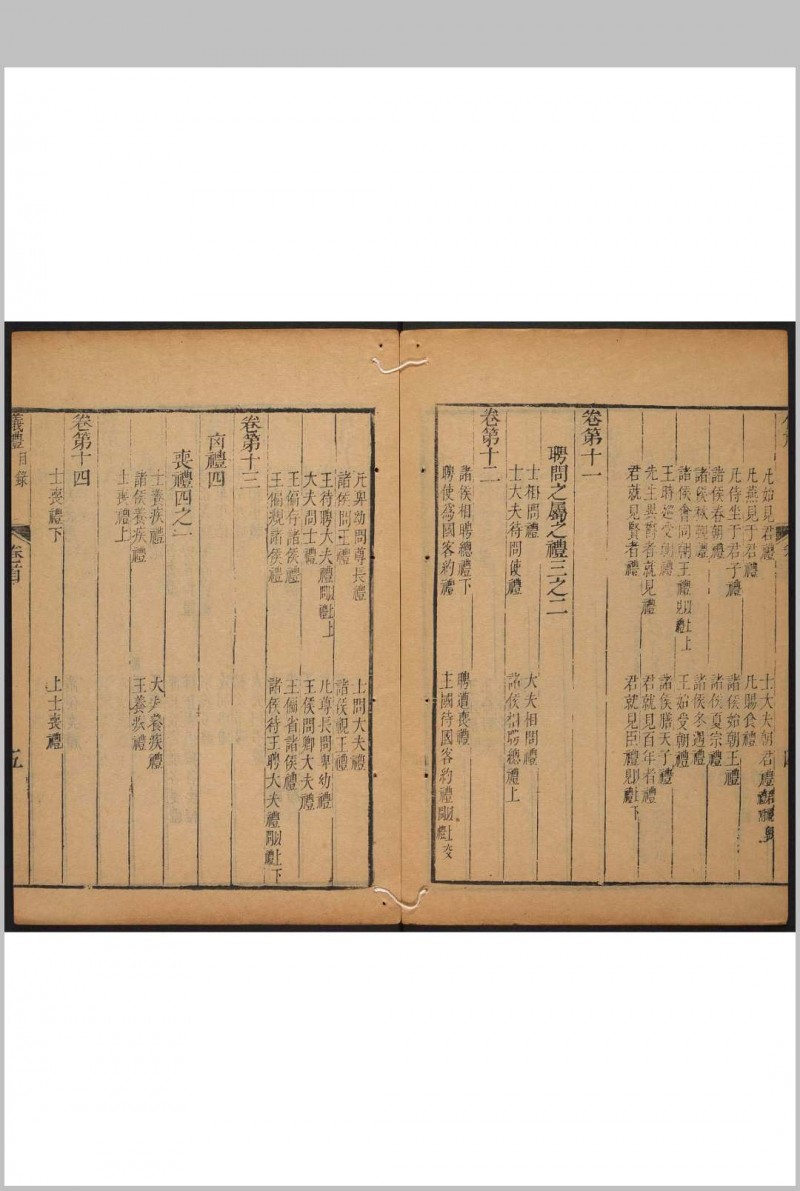 凡始見君禮　士大夫朝君禮
凡燕見于君禮　凡賜食禮
凡侍坐于君子禮　諸侯始朝王禮
諸侯春朝禮　諸侯夏宗禮
諸侯秋覲禮　諸侯冬遇禮
諸侯會同朝王禮　王始受朝禮
王時巡受朝禮　諸侯膳天子禮
先生異爵者就見禮　君就見百年者禮
君就見賢者禮　君就見臣禮
卷第十一
聘問之屬之禮三之二
士相問禮　大夫相問禮
士大夫待問使禮　諸侯相聘總禮上
卷第十二
諸侯相聘總禮下　聘遭喪禮
聘使為國客約禮　主國待國客約禮
凡卑幼問尊長禮　士問大夫禮
諸侯問王禮　諸侯覜王禮
王待聘大夫禮　凡尊長問卑幼禮
大夫問士禮　王侯問卿大夫禮
王徧存諸侯禮　王徧省諸侯禮
王徧覜諸侯禮　諸侯待王聘大夫禮
卷第十三
凶禮四
喪禮四之一
士養疾禮　大夫養疾禮
諸侯養疾禮　王養疾禮
士喪禮上
卷第十四
士喪禮下　上士喪禮
儀禮　目錄　卷首　五